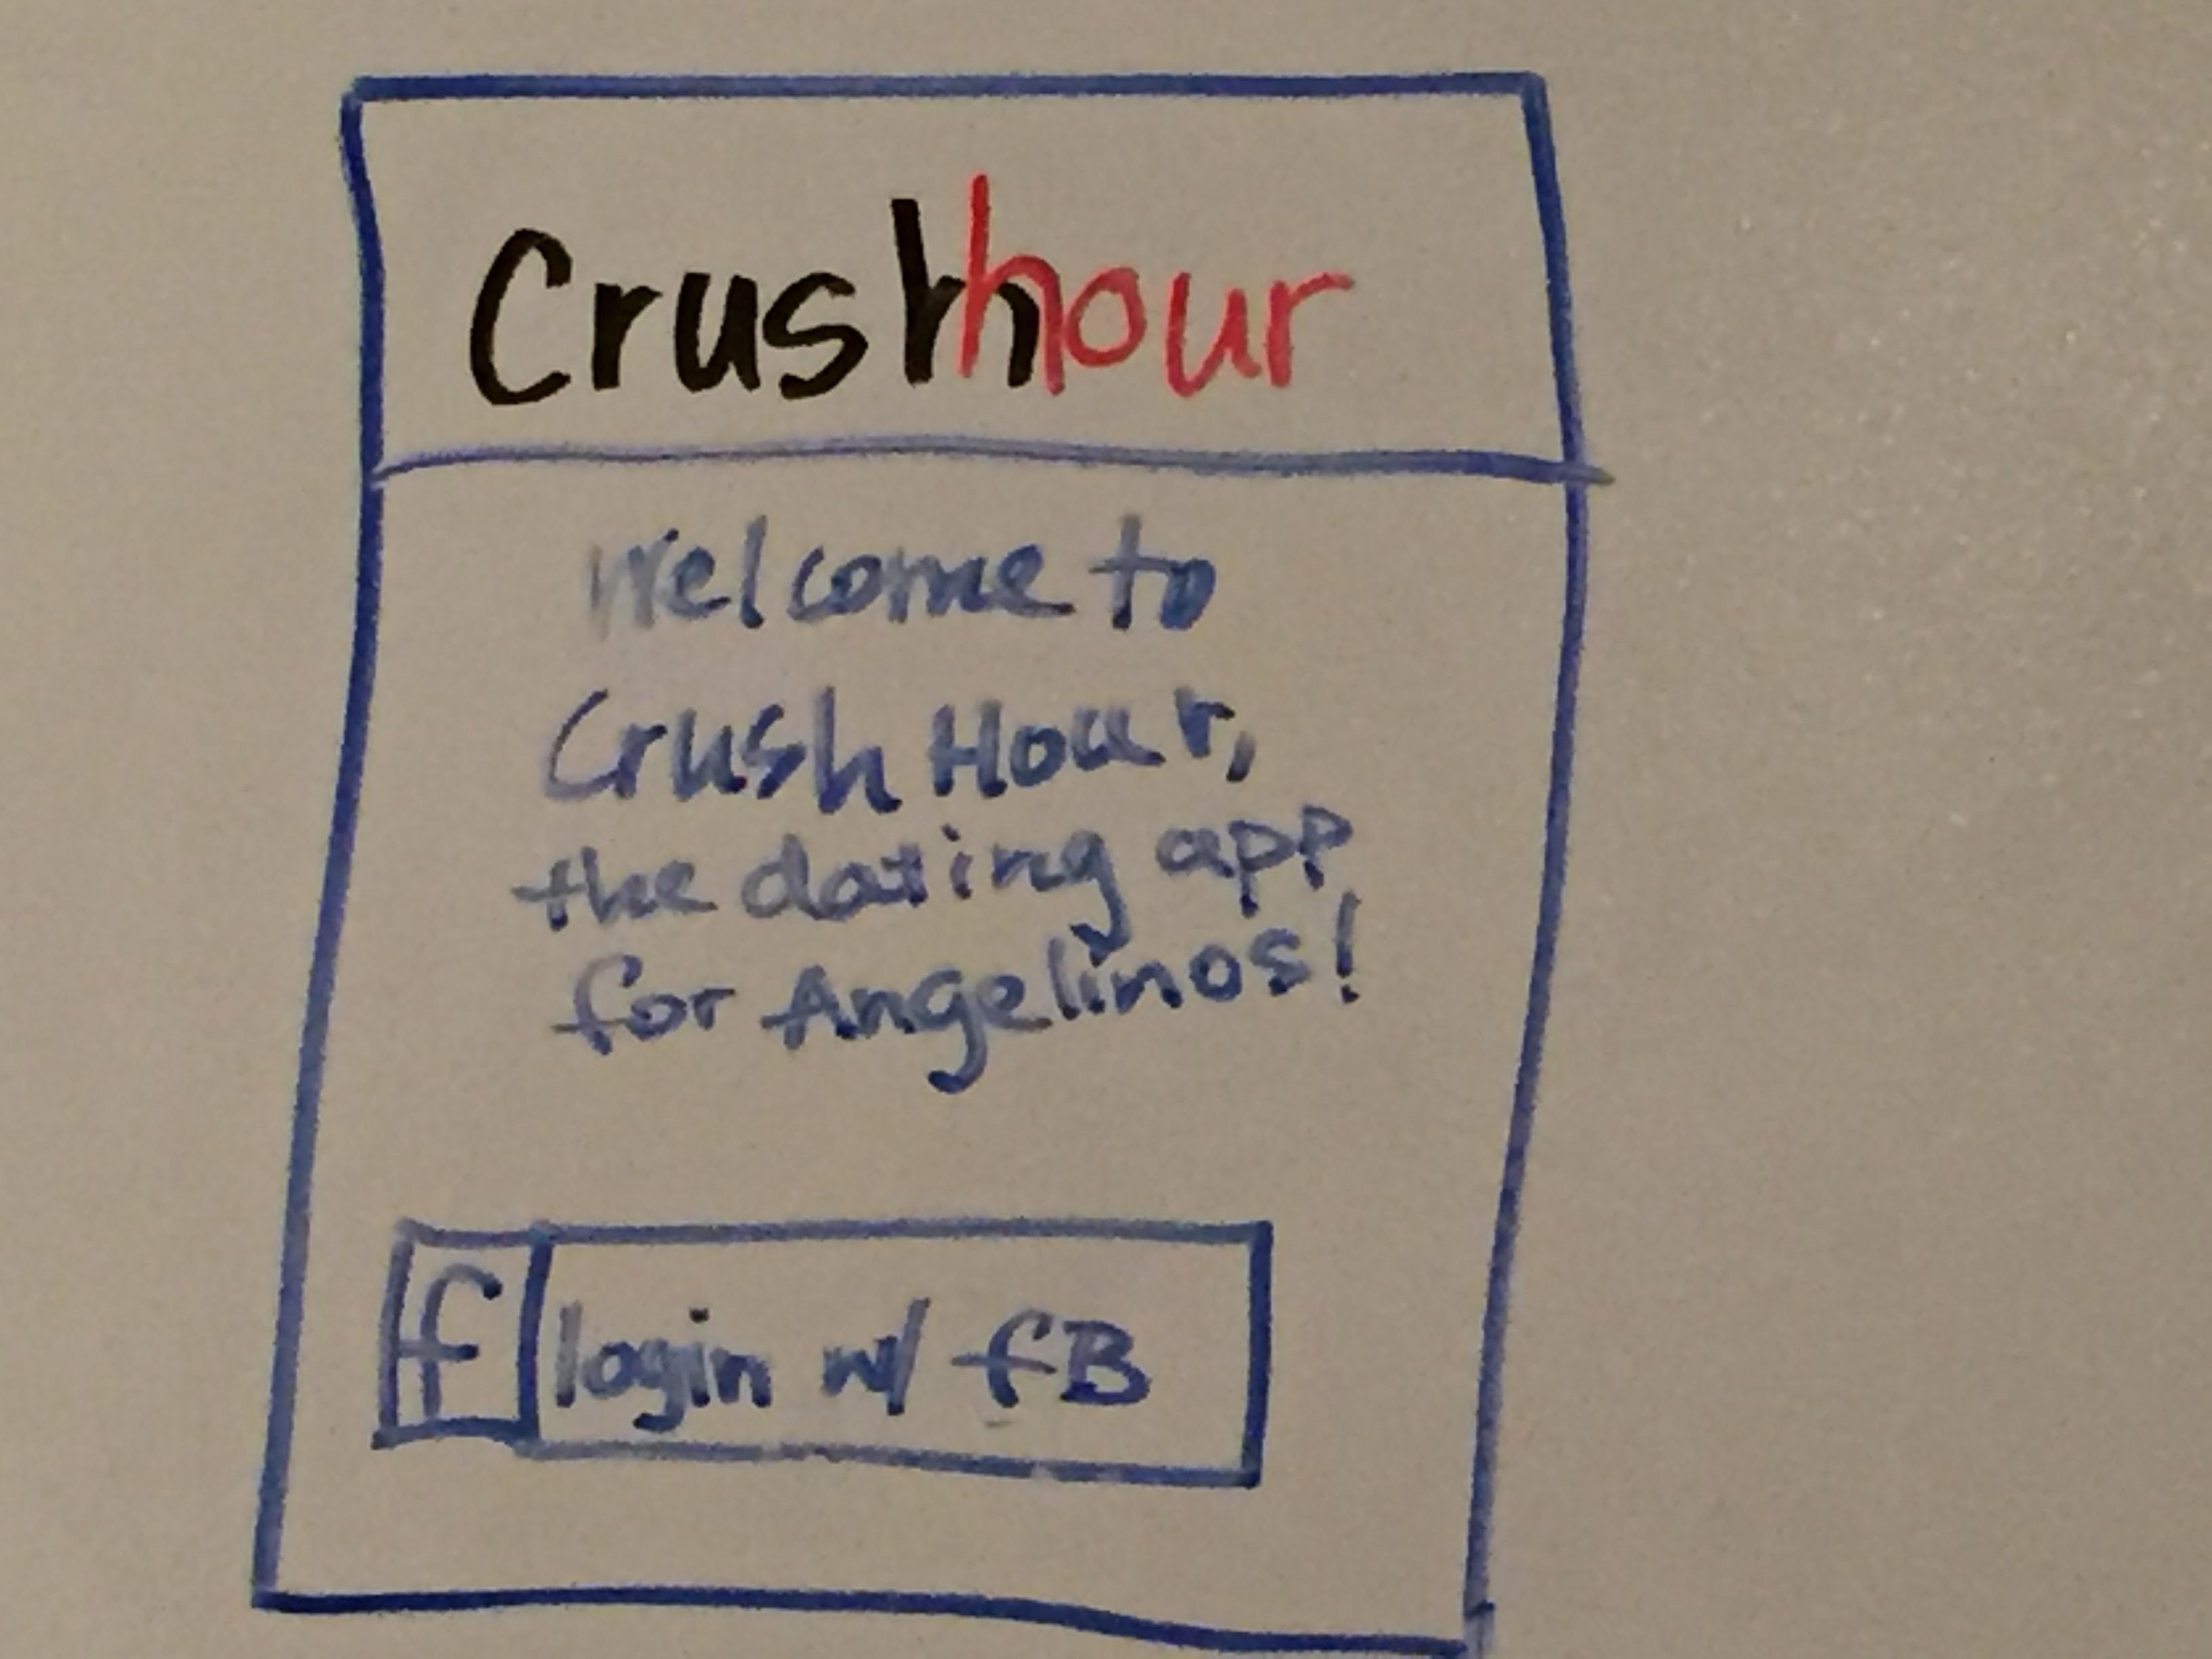 Crushhour
Welcome to
Crush Hour,
the dating app
for Angelinos!
f login w/ fB